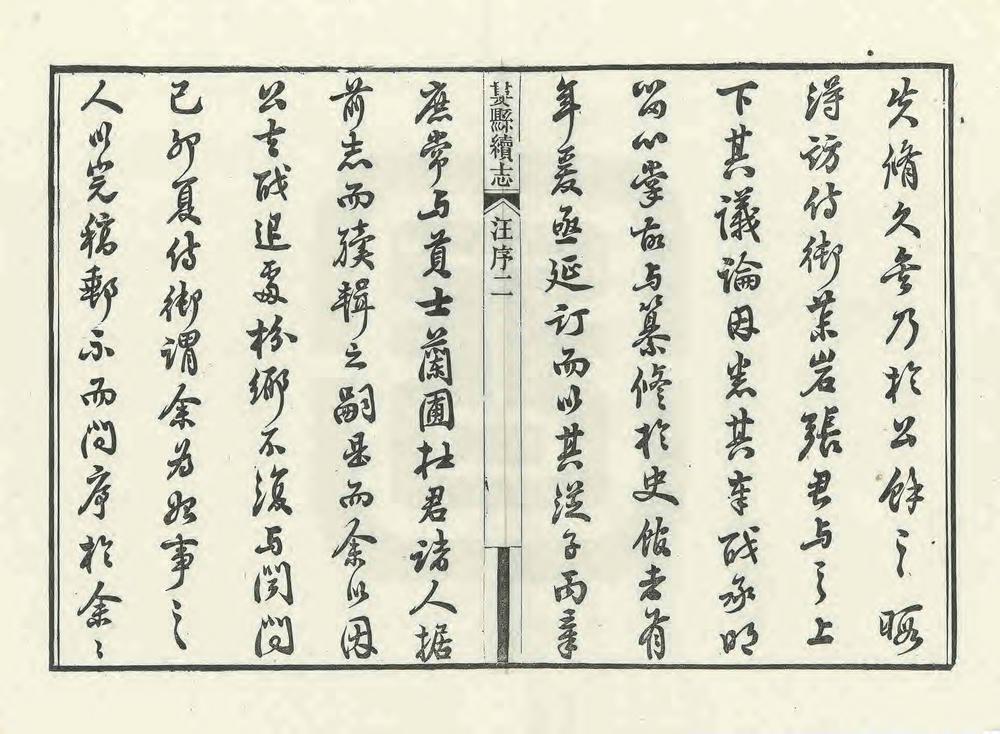 失脩久矣乃於公餘之暇
得訪侍御葉岩張君与之上
下其議論因悉其奉職承明
留心掌故与纂修於史館者有
年爰亟延訂而以其從子雨峯
婁縣續志
汪序二
庶常与貢士蘭圃杜君諸人据
前志而牘輯之嗣是而余以因
公去職退處枌鄉不復与聞問
己卯夏侍御謂余為始事之
人以完稿郵示而問序於余〻